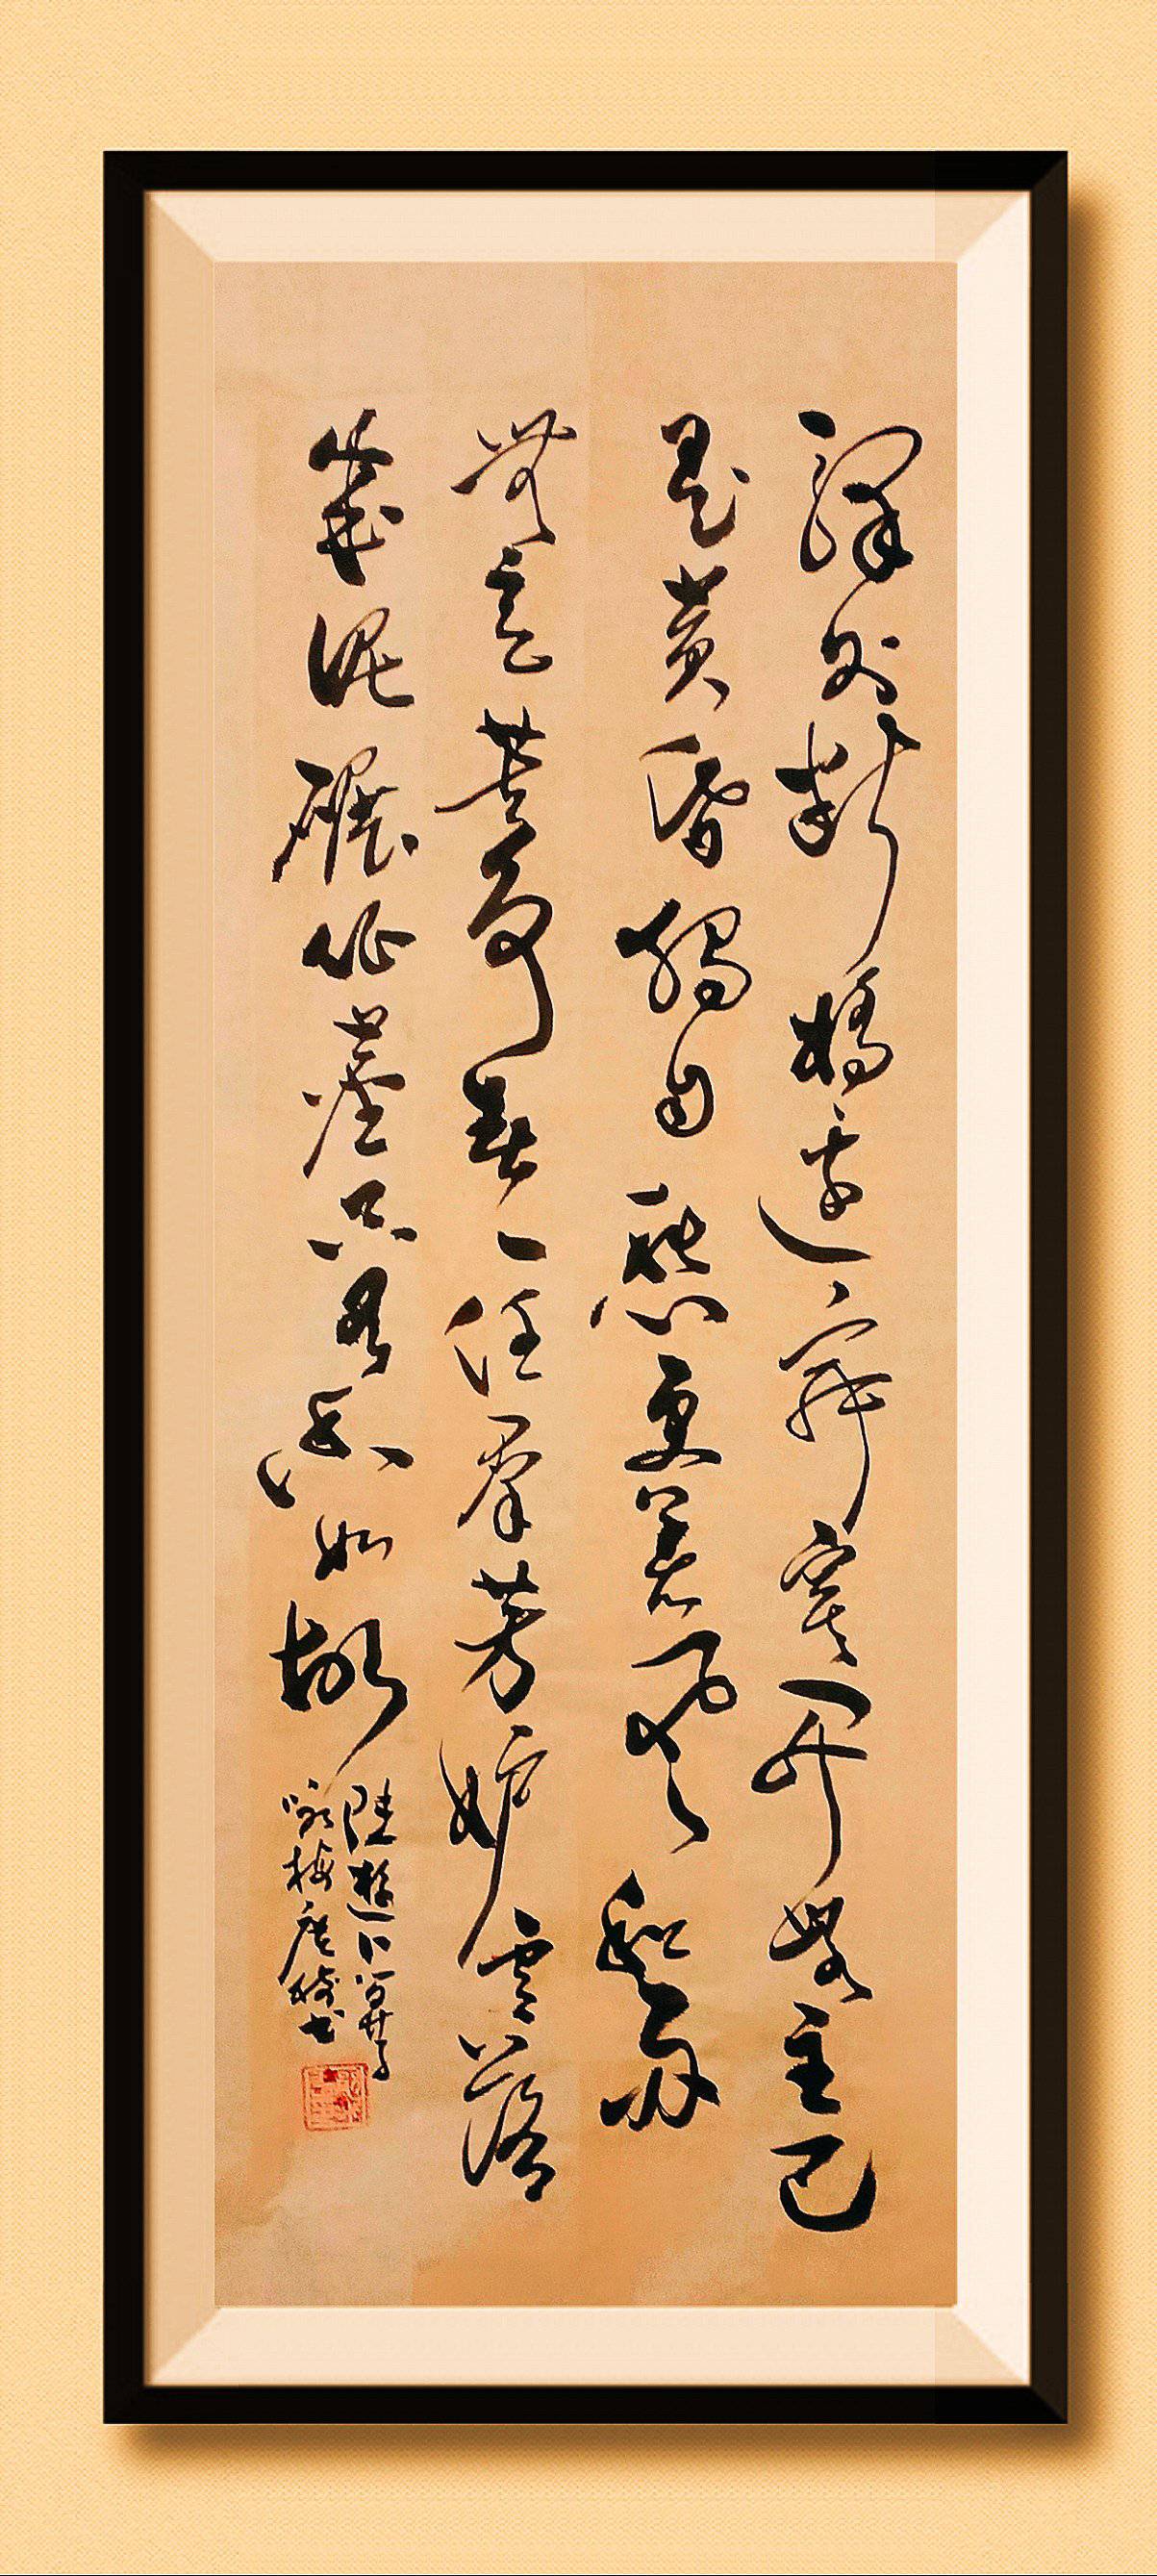 驛外斷橋邊寂寞開無主已
是黃昏獨自愁更著風和雨
無意苦爭春一任羣芳妒零落
成泥碾作塵只有香如故
陸遊卜算子
咏梅
书